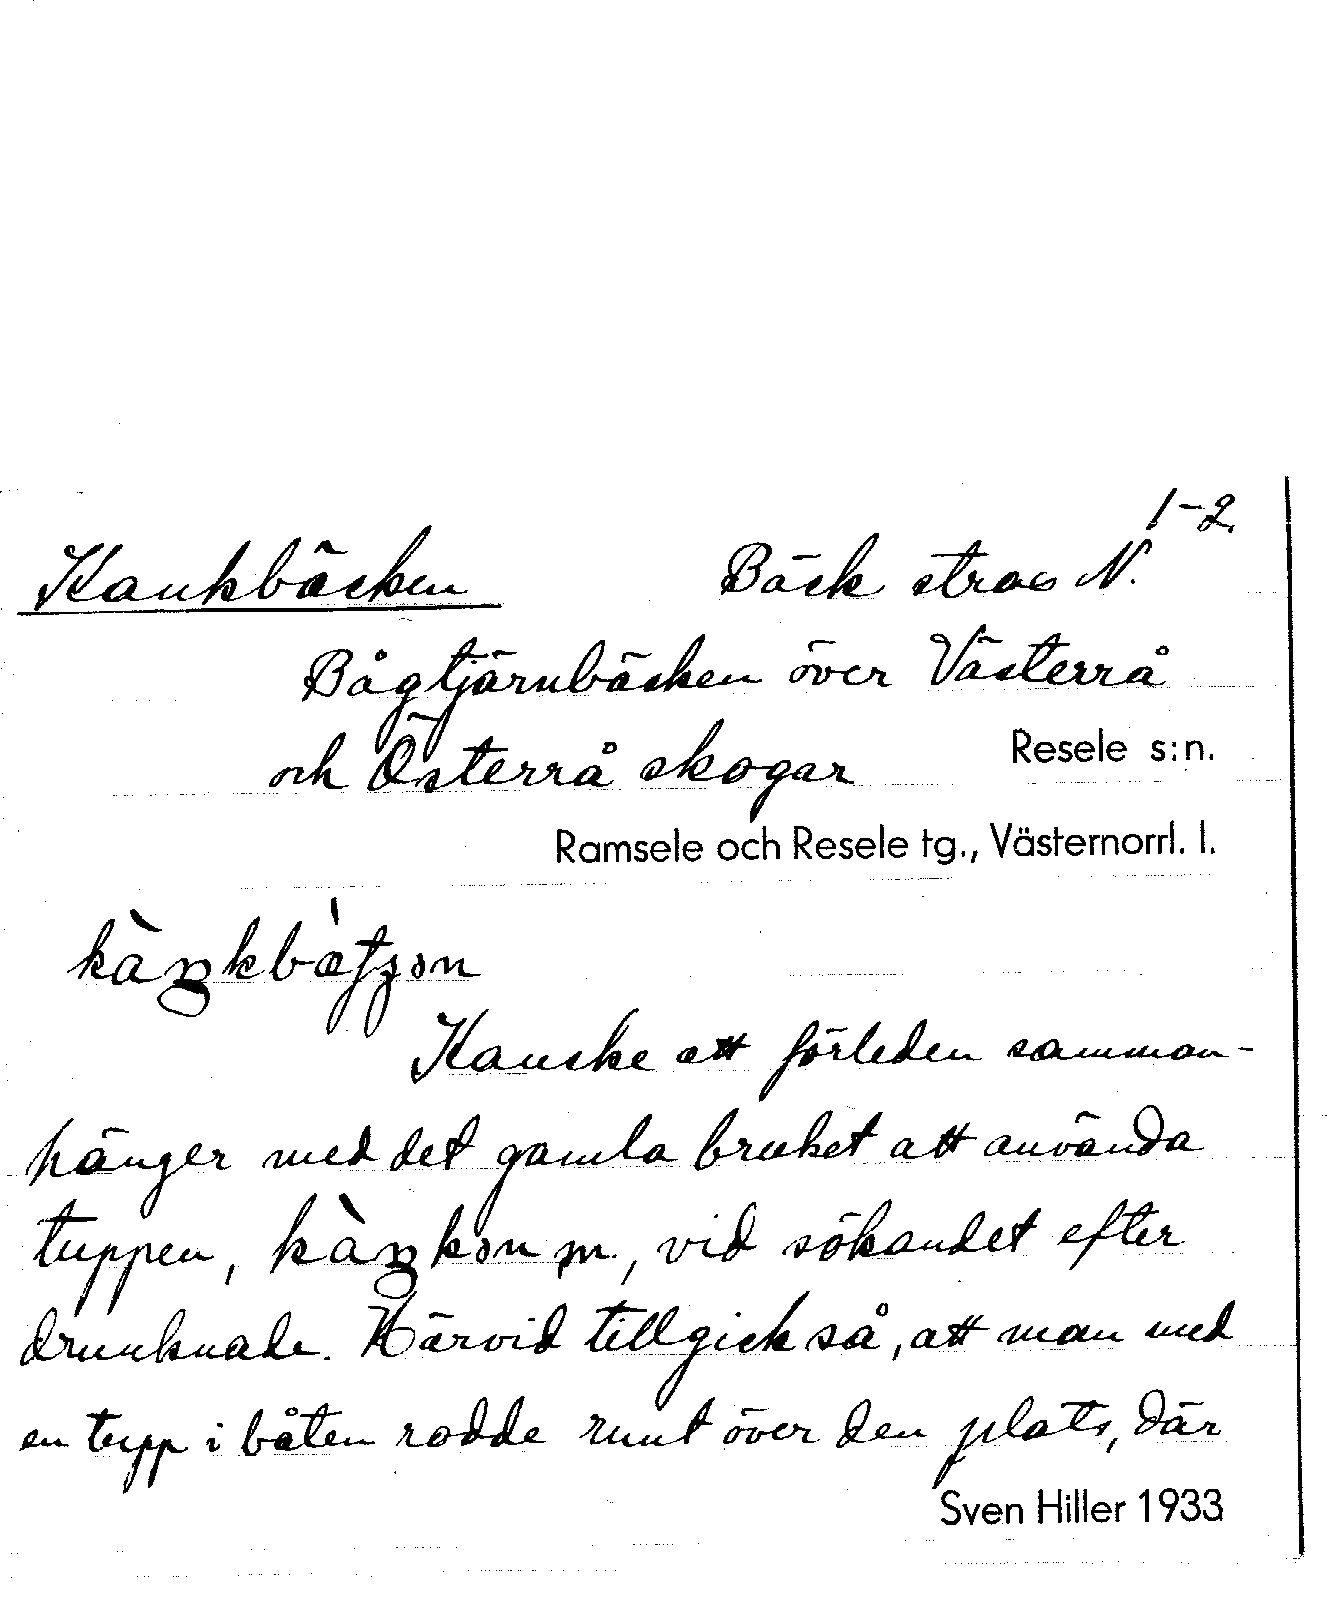 1-2.
Kankbäcken Bäck strax N.
Bågtjärnbäcken över Västerrå
och Österrå skogar Resele s:n.
Ramsele och Resele tg., Västernorrl. l.
Kanske att förleden samman-
hänger med det gamla bruket att använda
tuppen, m., vid sökandet efter
drunknade. Härvid tillgick så, att man med
en tupp i båten rodde runt över den plats, där
Sven Hiller 1933